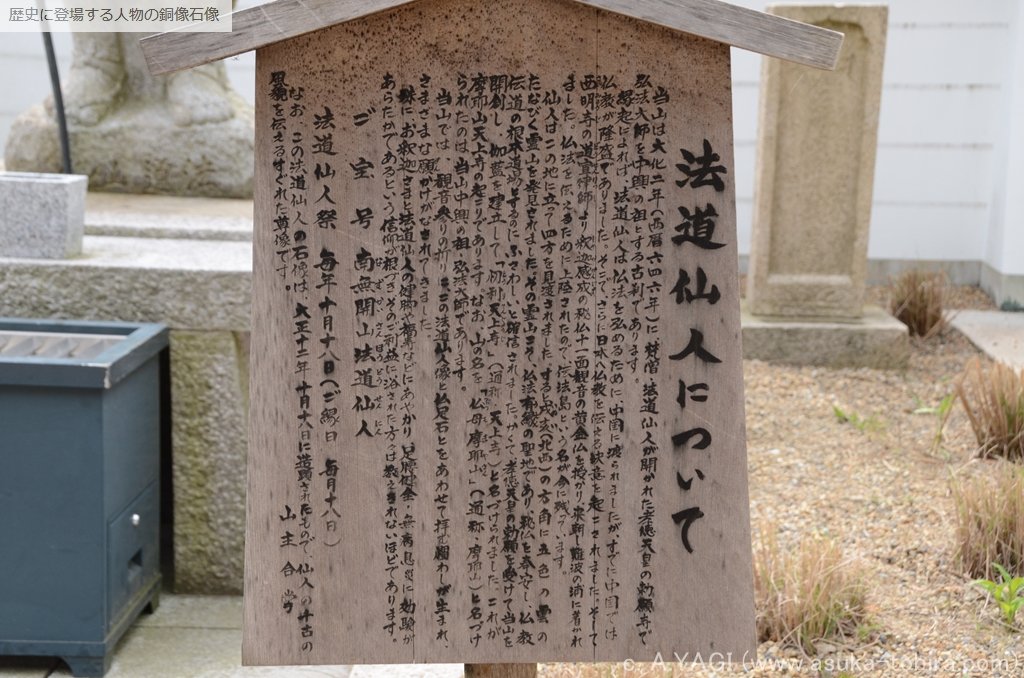 歴史に登場する人物の銅像石像
法道仙人について
当山は大化二年(西暦六四六年)に 法道仙人が開かれた孝徳天皇の勅願寺で
弘法大師を中興の祖とする古刹であります。
縁起によれば、法道仙人は仏法を弘めるために中国に渡られましたが、すでに中国では
仏教が隆盛でありました。そこで、さらに日本へ仏教を伝える決意を起こされました。そして
西明寺の道宣律師より釈迦感成の秘仏十一面観音の黄金仏を授かり、来朝し難波の浦に着かれ
ました。仏法を伝えるために上陸されたので、伝法島という名が今に残っています。
仙人はこの地に立って四方を見渡されました。すると戌亥(北西)の方角に五色の雲の
たなびく霊山を発見されました。その霊山こそ、仏法有縁の聖地であり、秘仏を奉安し、仏教
伝道の根本道場とするのにふさわしいと確信されました。かくて、孝徳天皇の勅願を受けて当山を
開創し、伽藍を建立して「忉利天上寺」(通称 天上寺)と名づけられました。これが
摩耶山天上寺の起こりであります。なお、山の名を「仏母摩耶山」(通称・摩耶山)と名づけ
られたのは、当山中興の祖、弘法大師であります。
当山では、観音参りの折りにこの法道仙人像と仏足石とをあわせて拝む慣わしが生まれ、
さまざまな願がけがなされてきました。
殊にお釈迦さまと法道仙人の健脚や などにあやかり、足腰健全・無病息災に効験が
あらたかであるという信仰が根づき、そのご利益に浴された方々は数えきれないほどであります。
ご宝号 南無開山法道仙人
なむかいさんほうどうせんにん
法道仙人祭 毎年十月十八日(ご縁日 毎月十八日)
なお、この法道仙人の石像は、大正十二年十月十八日に造顕されたもので、仙人の往古の
風貌を伝えるすぐれた尊像です。
山主 合掌
c. A.YAGI (www.asuka-tobira.com)